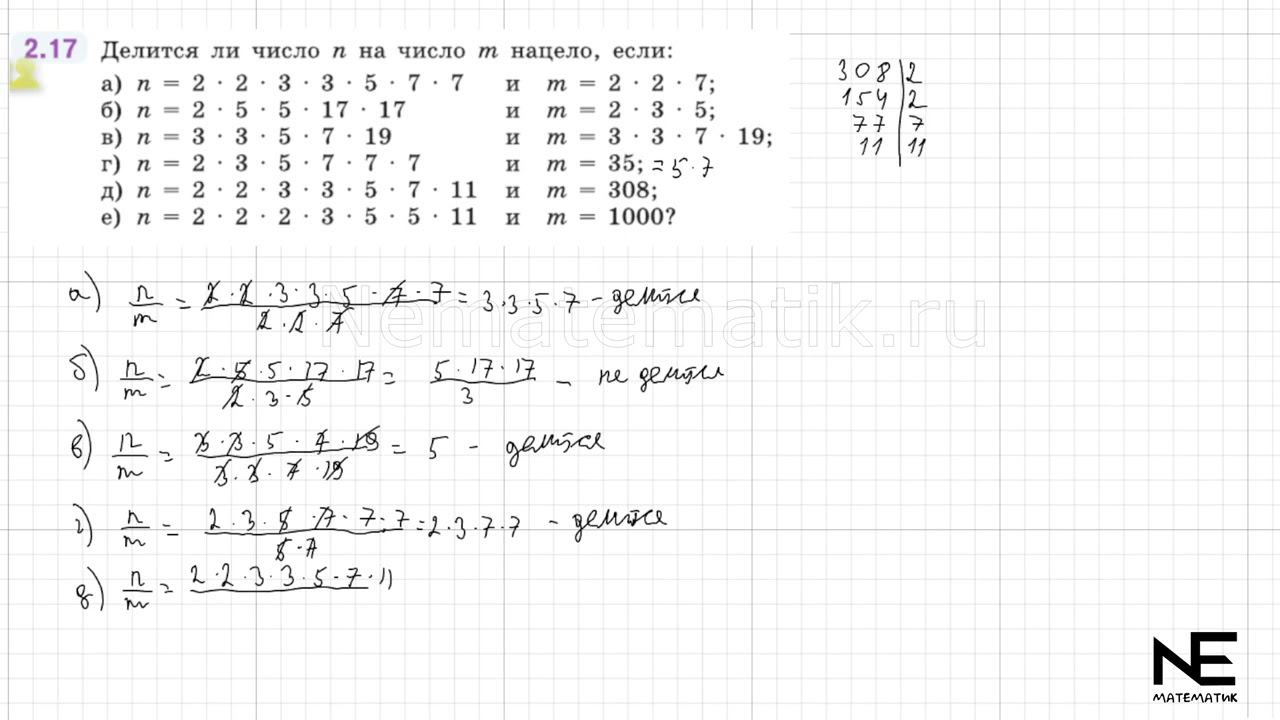 2.17 Делится ли число n на число m нацело, если:
а) n = 2 · 2 · 3 · 3 · 5 · 7 · 7 и m = 2 · 2 · 7;
б) n = 2 · 5 · 5 · 17 · 17 и m = 2 · 3 · 5;
в) n = 3 · 3 · 5 · 7 · 19 и m = 3 · 3 · 7 · 19;
г) n = 2 · 3 · 5 · 7 · 7 · 7 и m = 35; = 5 · 7
д) n = 2 · 2 · 3 · 3 · 5 · 7 · 11 и m = 308;
е) n = 2 · 2 · 2 · 3 · 5 · 5 · 11 и m = 1000?
308 | 2
154 | 2
77 | 7
11 | 11
а) n/m = 2 · 2 · 3 · 3 · 5 · 7 · 7 / 2 · 2 · 7 = 3 · 3 · 5 · 7 – делится
б) n/m = 2 · 5 · 5 · 17 · 17 / 2 · 3 · 5 = 5 · 17 · 17 / 3 – не делится
в) n/m = 3 · 3 · 5 · 7 · 19 / 3 · 3 · 7 · 19 = 5 – делится
г) n/m = 2 · 3 · 5 · 7 · 7 · 7 / 5 · 7 = 2 · 3 · 7 · 7 – делится
д) n/m = 2 · 2 · 3 · 3 · 5 · 7 · 11
Nematematik.ru
NE
МАТЕМАТИК